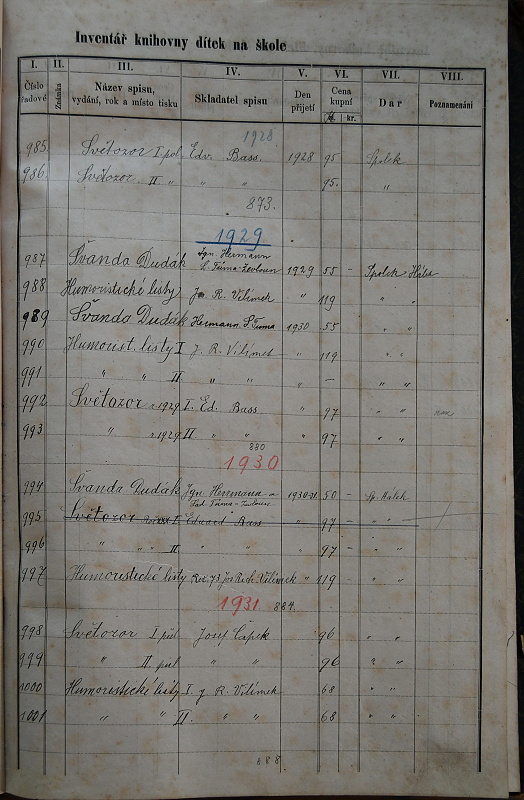 Inventář knihovny dítek na škole
I. II. III. IV. V. VI. VII. VIII.
Číslo řadové Známka Název spisu, vydání, rok a místo tisku Skladatel spisu Den přijetí Cena kupní Dar Poznamenání
kr.
1928
985 Světozor I. pol. Edv. Bass. 1928 95 Spolek
986. Světozor II. " " " 95. "
873.
1929
987 Švanda Dudák Ign. Hermann
1929 55 – Spolek
988 Humoristické listy J. R. Vilímek " 119 " "
989 Švanda Dudák Hermann 1930 55 " "
990 Humorist. listy I J. R. Vilímek " 119 " "
991 " " II " " " – " "
992 Světozor r. 1929 I. Ed. Bass " 97 " "
993 " r. 1929 II " " " 97 " "
880
1930
994 Švanda Dudák Ign. Hermann a 50 –
995 Světozor I Eduard Bass " 97 – " "
996 " " II " " 97 – " "
997 Humoristické listy Roč. 73 Jos. Rich. Vilímek " 119 " "
1931 884.
998 Světozor I půl Josef Čapek 96 " "
999 " II. půl " " 96 " "
1000 Humoristické listy I. J. R. Vilímek 68 " "
1001 " " II " " 68 " "
888.